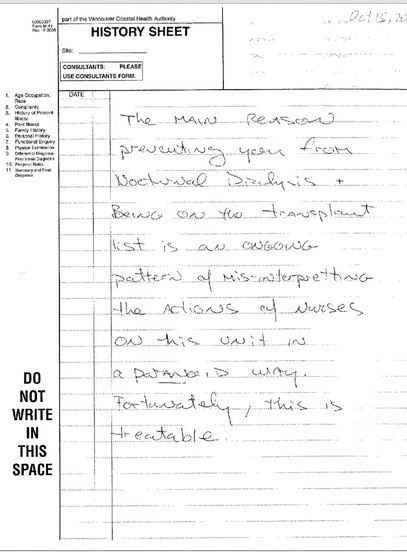 part of the Vancouver Coastal Health Authority
HISTORY SHEET
Site:
CONSULTANTS: PLEASE
USE CONSULTANTS FORM.
Oct 15, 20
1. Age Occupation,
Race
2. Complaints
3. History of Present
Illness
4. Past Illness
5. Family History
6. Personal History
7. Functional Enquiry
8. Physical Examination
9. Differential Diagnosis
Provisional Diagnosis
10. Progress Notes
11. Summary and Final
Diagnosis
DATE
The MAIN REASON
preventing you from
Nocturnal Dialysis +
Being on the transplant
list is an ONGOING
pattern of mis-interpretting
the ACTIONS of Nurses
ON this UNIT in
a paranoid way.
Fortunately, this is
treatable.
DO
NOT
WRITE
IN
THIS
SPACE